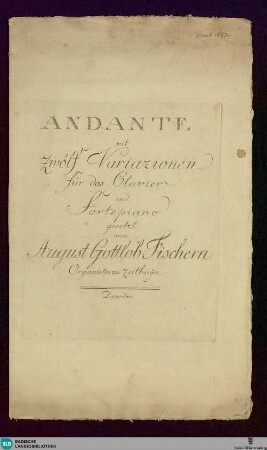 ANDANTE
mit
zwölf Variazionen
für das Clavier
und
Fortepiano
gesetzt
von
August Gottlob Fischern
Organisten zu
Dresden
BLB
BADISCHE
LANDESBIBLIOTHEK